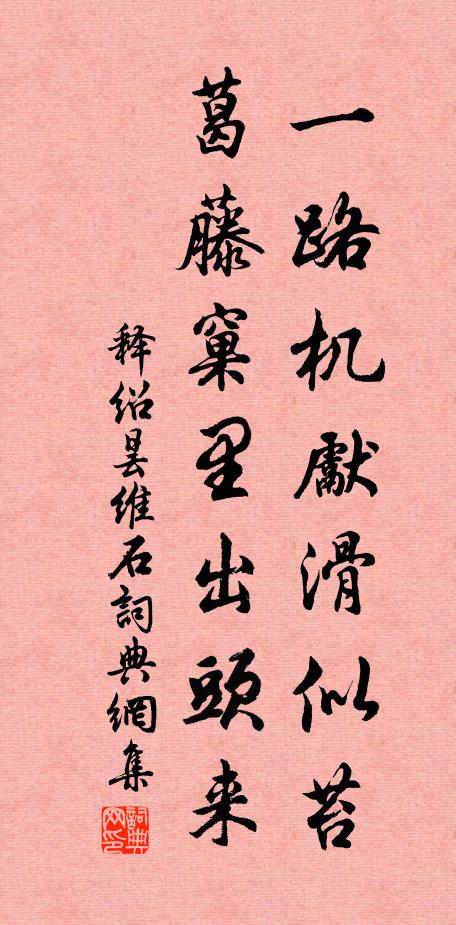 一路机獻滑似苔
葛藤窠里出頭来
释绍昙維石詞典網集
詞典网印